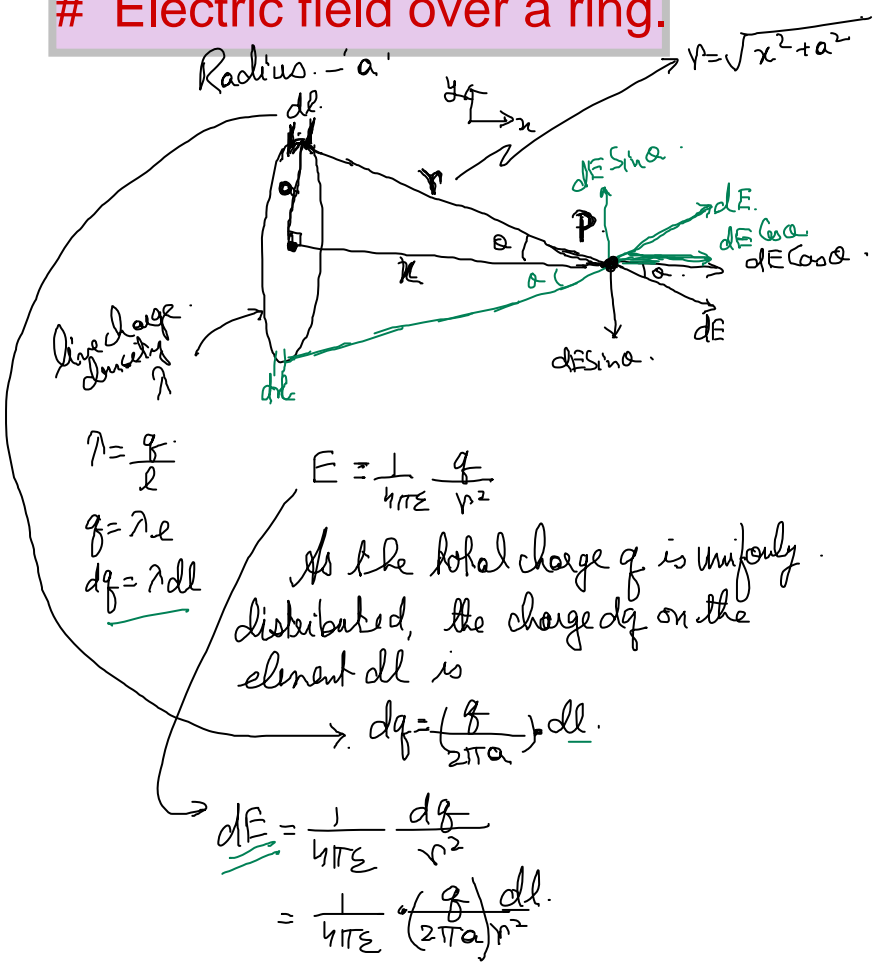 # Electric field over a ring.
Radius. - 'a'
r = √x² + a²
dl.
y
x
a
r
dE Sinθ.
P.
dE.
dE Cosθ
dE Cosθ.
θ
x
θ
θ.
dE
dESinθ.
line charge
density
λ
dl.
λ = q/l
q = λe
dq = λdl
E = 1/4πε q/r²
As the total charge q is unifouly.
distributed, the charge dq on the
element dl is
dq = (q/2πa) · dl.
dE = 1/4πε dq/r²
= 1/4πε · (q/2πa) dl./r²